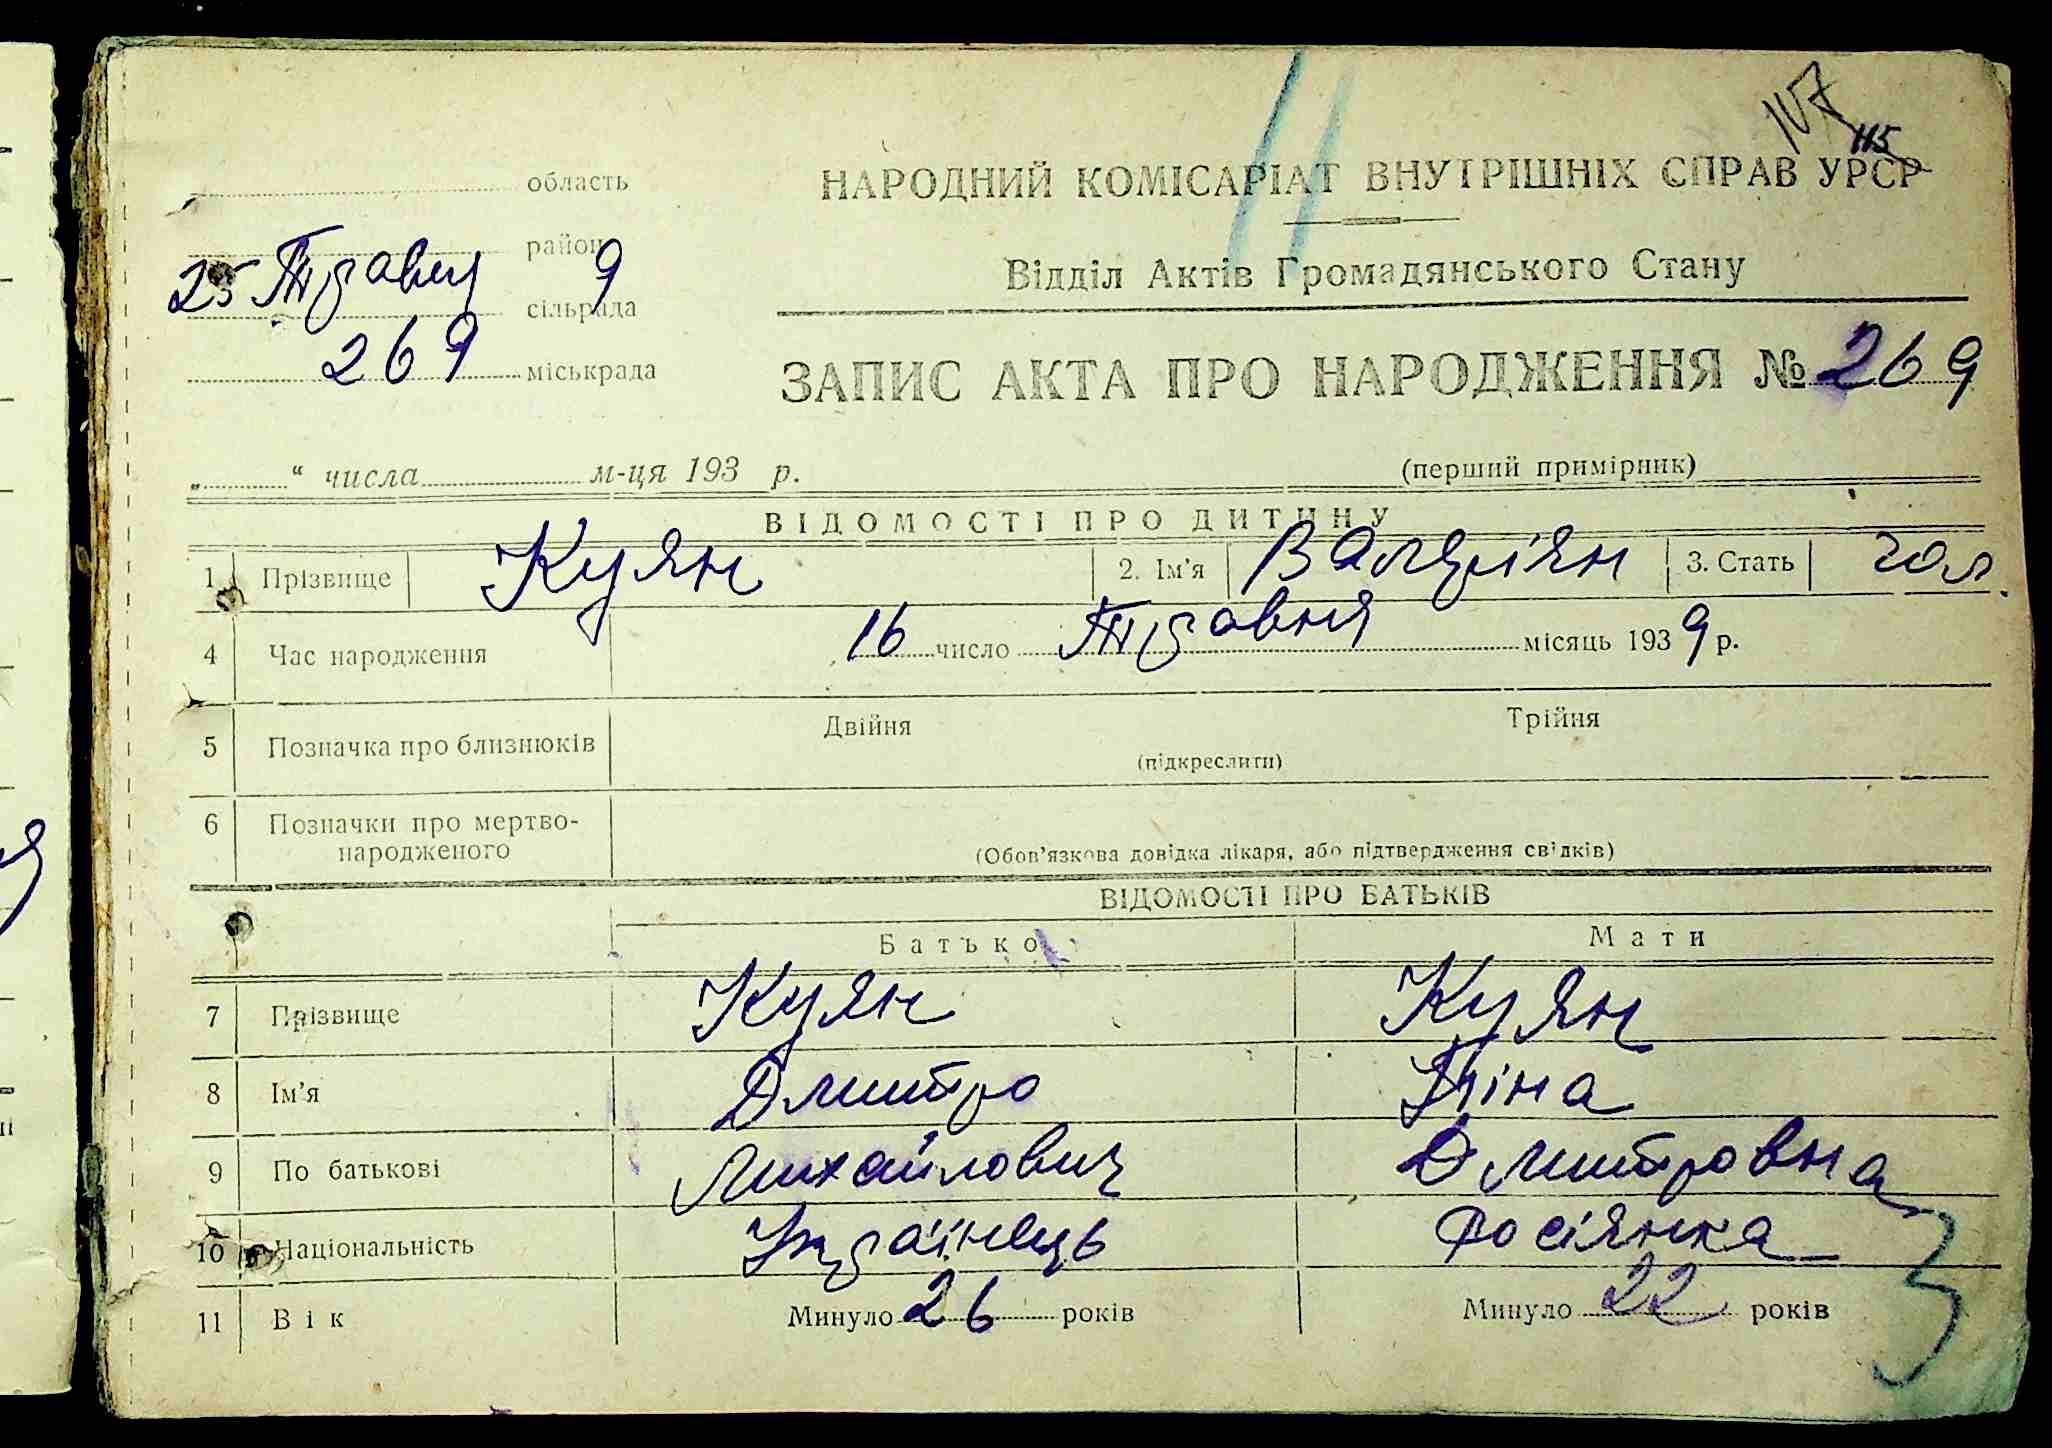 107
115
область
НАРОДНИЙ КОМІСАРІАТ ВНУТРІШНІХ СПРАВ УРСР
район
25 Травня 9
Відділ Актів Громадянського Стану
сільрада
269 міськрада
ЗАПИС АКТА ПРО НАРОДЖЕННЯ № 269
„ “ числа м-ця 193 р.
(перший примірник)
ВІДОМОСТІ ПРО ДИТИНУ
1 Прізвище Куян 2. Ім'я Валеріян 3. Стать чол.
4 Час народження 16 число Травня місяць 1939 р.
5 Позначка про близнюків Двійня Трійня
(підкреслити)
6 Позначки про мертво-
народженого (Обов'язкова довідка лікаря, або підтвердження свідків)
ВІДОМОСТІ ПРО БАТЬКІВ
Батько Мати
7 Прізвище Куян Куян
8 Ім'я Дмитро Ніна
9 По батькові Михайлович Дмитровна
10 Національність Українець Росіянка
11 Вік Минуло 26 років Минуло 22 років